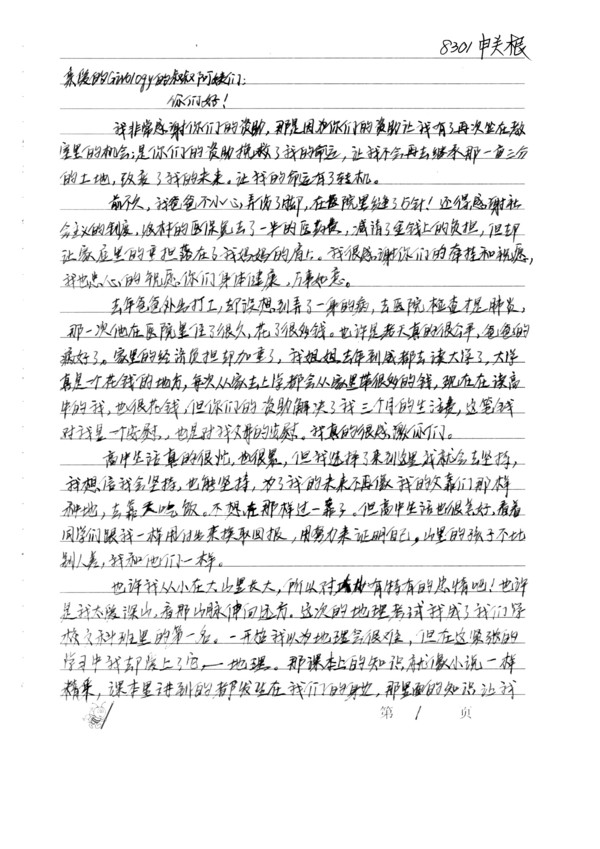 8301 申关根
亲爱的Ginology的叔叔阿姨们:
你们好!
我非常感谢你们的资助,那是因为你们的资助让我有了再次坐在教
室里的机会;是你们的资助挽救了我的命运,让我不会再去继承那一亩三分
的土地,改变了我的未来。让我的命运有了转机。
前不久,我爸爸不小心,弄伤了脚,在医院里缝了5针!还得感谢社
会主义的制度,这样的医保免去了一半的医药费,减清了金钱上的负担,但却
让家庭里的重担落在了我妈妈的肩上。我很感谢你们的牵挂和祝愿,
我也忠心的祝愿你们身体健康,万事如意。
去年爸爸外出打工,却没想到弄了一身的病,去医院检查才是肺炎,
那一次他在医院里住了很久,花了很多钱。也许是老天真的很公平,爸爸的
病好了。家里的经济负担却加重了,我姐姐去年到成都去读大学了,大学
真是个花钱的地方,每次从家去上学都会从家里带很多的钱,现在在读高
中的我,也很花钱,但你们的资助解决了我三个月的生活费,这笔钱
对我是一安慰,也是对我父母的安慰。我真的很感激你们。
高中生活真的很忙,也很累,但我选择了来到这里我就会去坚持,
我想信我会坚持,也能坚持,为了我的未来不再像我的父辈们那样
种地,去靠天吃饭。不想在那样过一辈子。但高中生活也很美好,看着
同学们跟我一样用付出来换取回报,用努力来证明自己,山里的孩子不比
别人差,我和他们一样。
也许我从小在大山里长大,所以对有特有的感情吧!也许
是我太爱深山,看那山脉伸向远方。这次的地理考试我成了我们学
校文科班里的第一名。一开始我以为地理会很难,但在这紧张的
学习中我却爱上了它——地理。那课本上的知识就像小说一样
精采,课本里讲到的都发生在我们的身边,那里面的知识让我
第 1 页